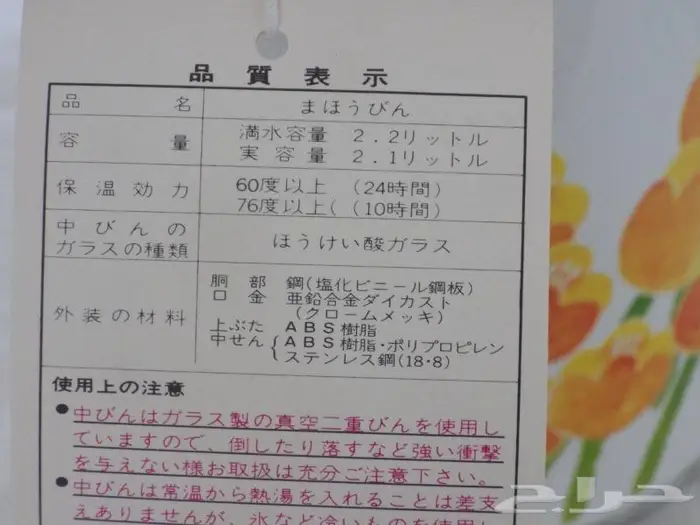 品質表示
品名 まほうびん
容量 満水容量 2.2リットル
実容量 2.1リットル
保温効力 60度以上 (24時間)
76度以上( (10時間)
中びんの
ガラスの種類 ほうけい酸ガラス
外装の材料 胴部 鋼(塩化ビニール鋼板)
口金 亜鉛合金ダイカスト
(クロームメッキ)
上ぶた ABS樹脂
中せん{ABS樹脂・ポリプロピレン
ステンレス鋼(18・8)
使用上の注意
●中びんはガラス製の真空二重びんを使用し
ていますので、倒したり落すなど強い衝撃
を与えない様お取扱は充分ご注意下さい。
●中びんは常温から熱湯を入れることは差支
えありませんが、氷など冷いものを使用し
حراج